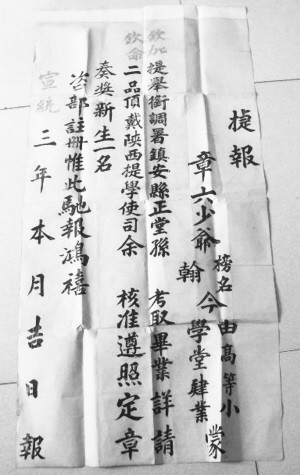 捷報
章六少爺 榜名 翰 今 由高等小學堂肄業 蒙
欽加提舉銜調署鎮安縣正堂孫 考取畢業詳請
欽命二品頂戴陝西提學使司余 核准遵照定章
奏獎新生一名
咨部註冊惟此馳報鴻禧
宣統三年本月吉日報